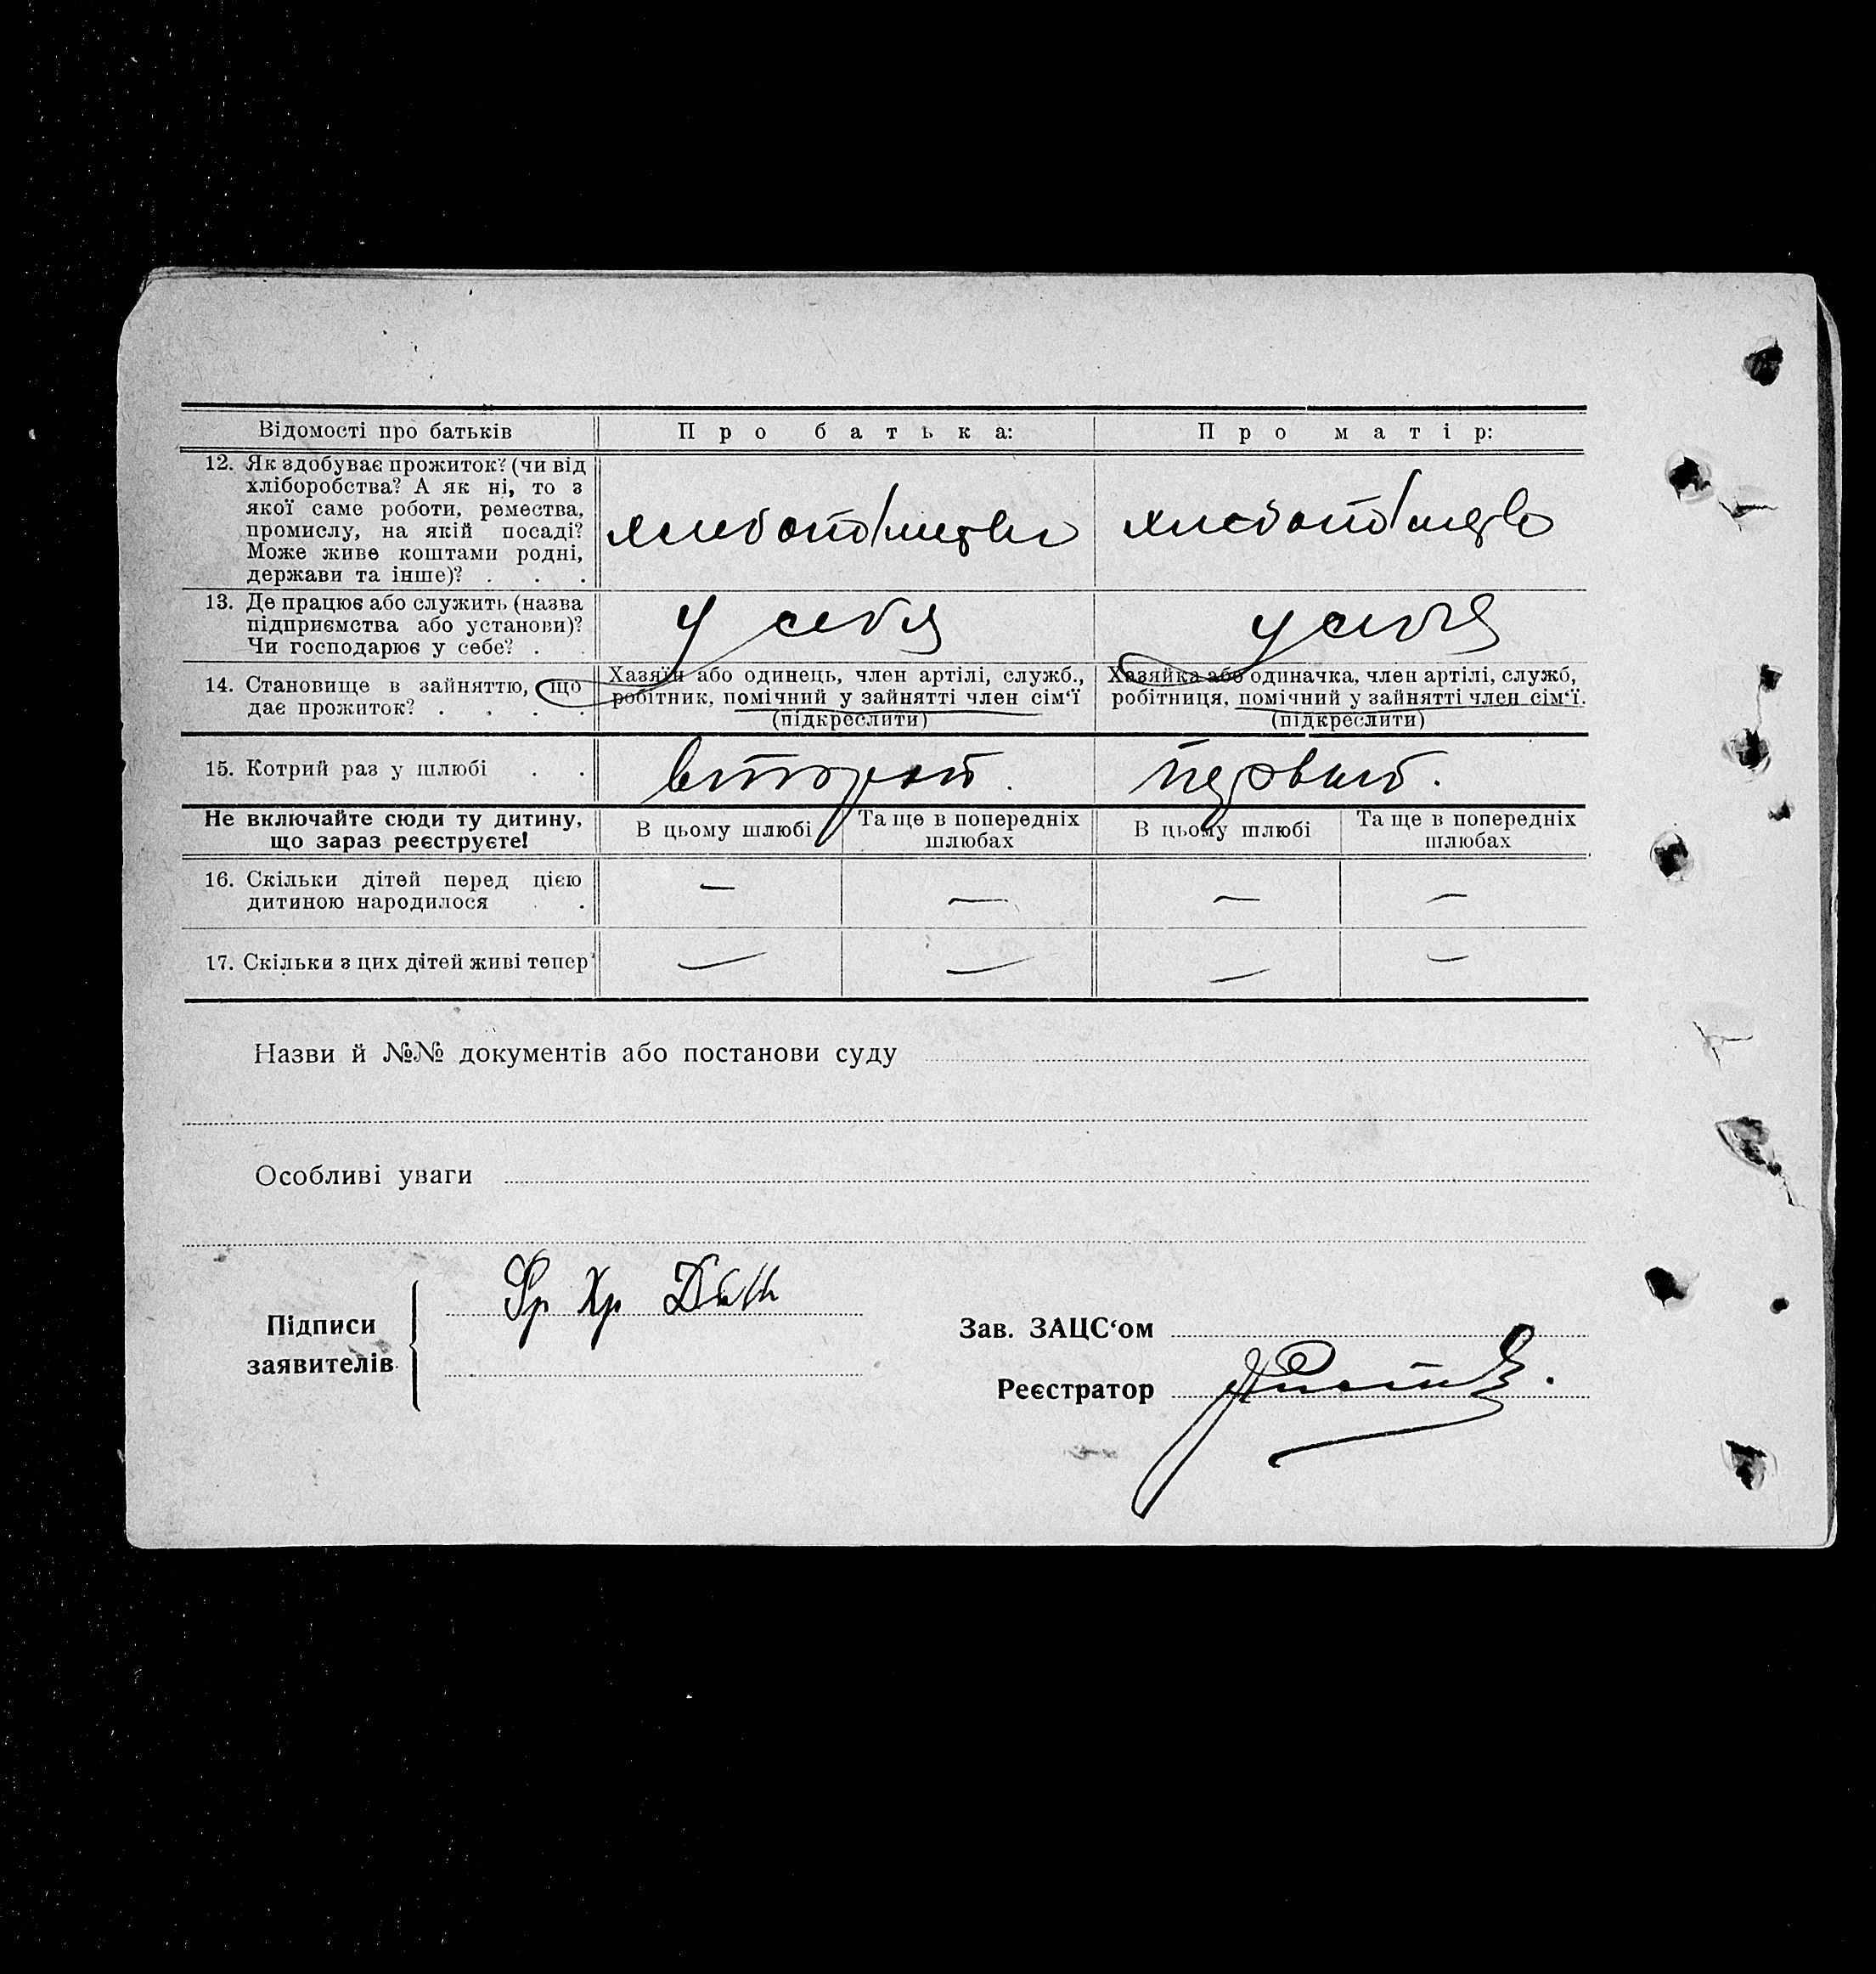 Відомості про батьків
Про батька:
Про матір:
12. Як здобуває прожиток? (чи від
хліборобства? А як ні, то з
якої саме роботи, ремества,
промислу, на якій посаді?
Може живе коштами родні,
держави та інше)? . . .
хлебопашество
хлебопашество
13. Де працює або служить (назва
підприємства або установи)?
Чи господарює у себе? . .
у себя
у себя
14. Становище в зайняттю, що
дає прожиток? . . . .
Хазяїн або одинець, член артілі, служб.,
робітник, помічний у зайнятті член сім'ї
(підкреслити)
Хазяйка або одиначка, член артілі, служб,
робітниця, помічний у зайнятті член сім'ї.
(підкреслити)
15. Котрий раз у шлюбі . .
второй.
первый.
Не включайте сюди ту дитину,
що зараз реєструєте!
В цьому шлюбі
Та ще в попередніх
шлюбах
В цьому шлюбі
Та ще в попередніх
шлюбах
16. Скільки дітей перед цією
дитиною народилося . .
— — — —
17. Скільки з цих дітей живі тепер
— — — —
Назви й №№ документів або постанови суду
Особливі уваги
Підписи
заявителів
Хр
Зав. ЗАЦС'ом
Реєстратор